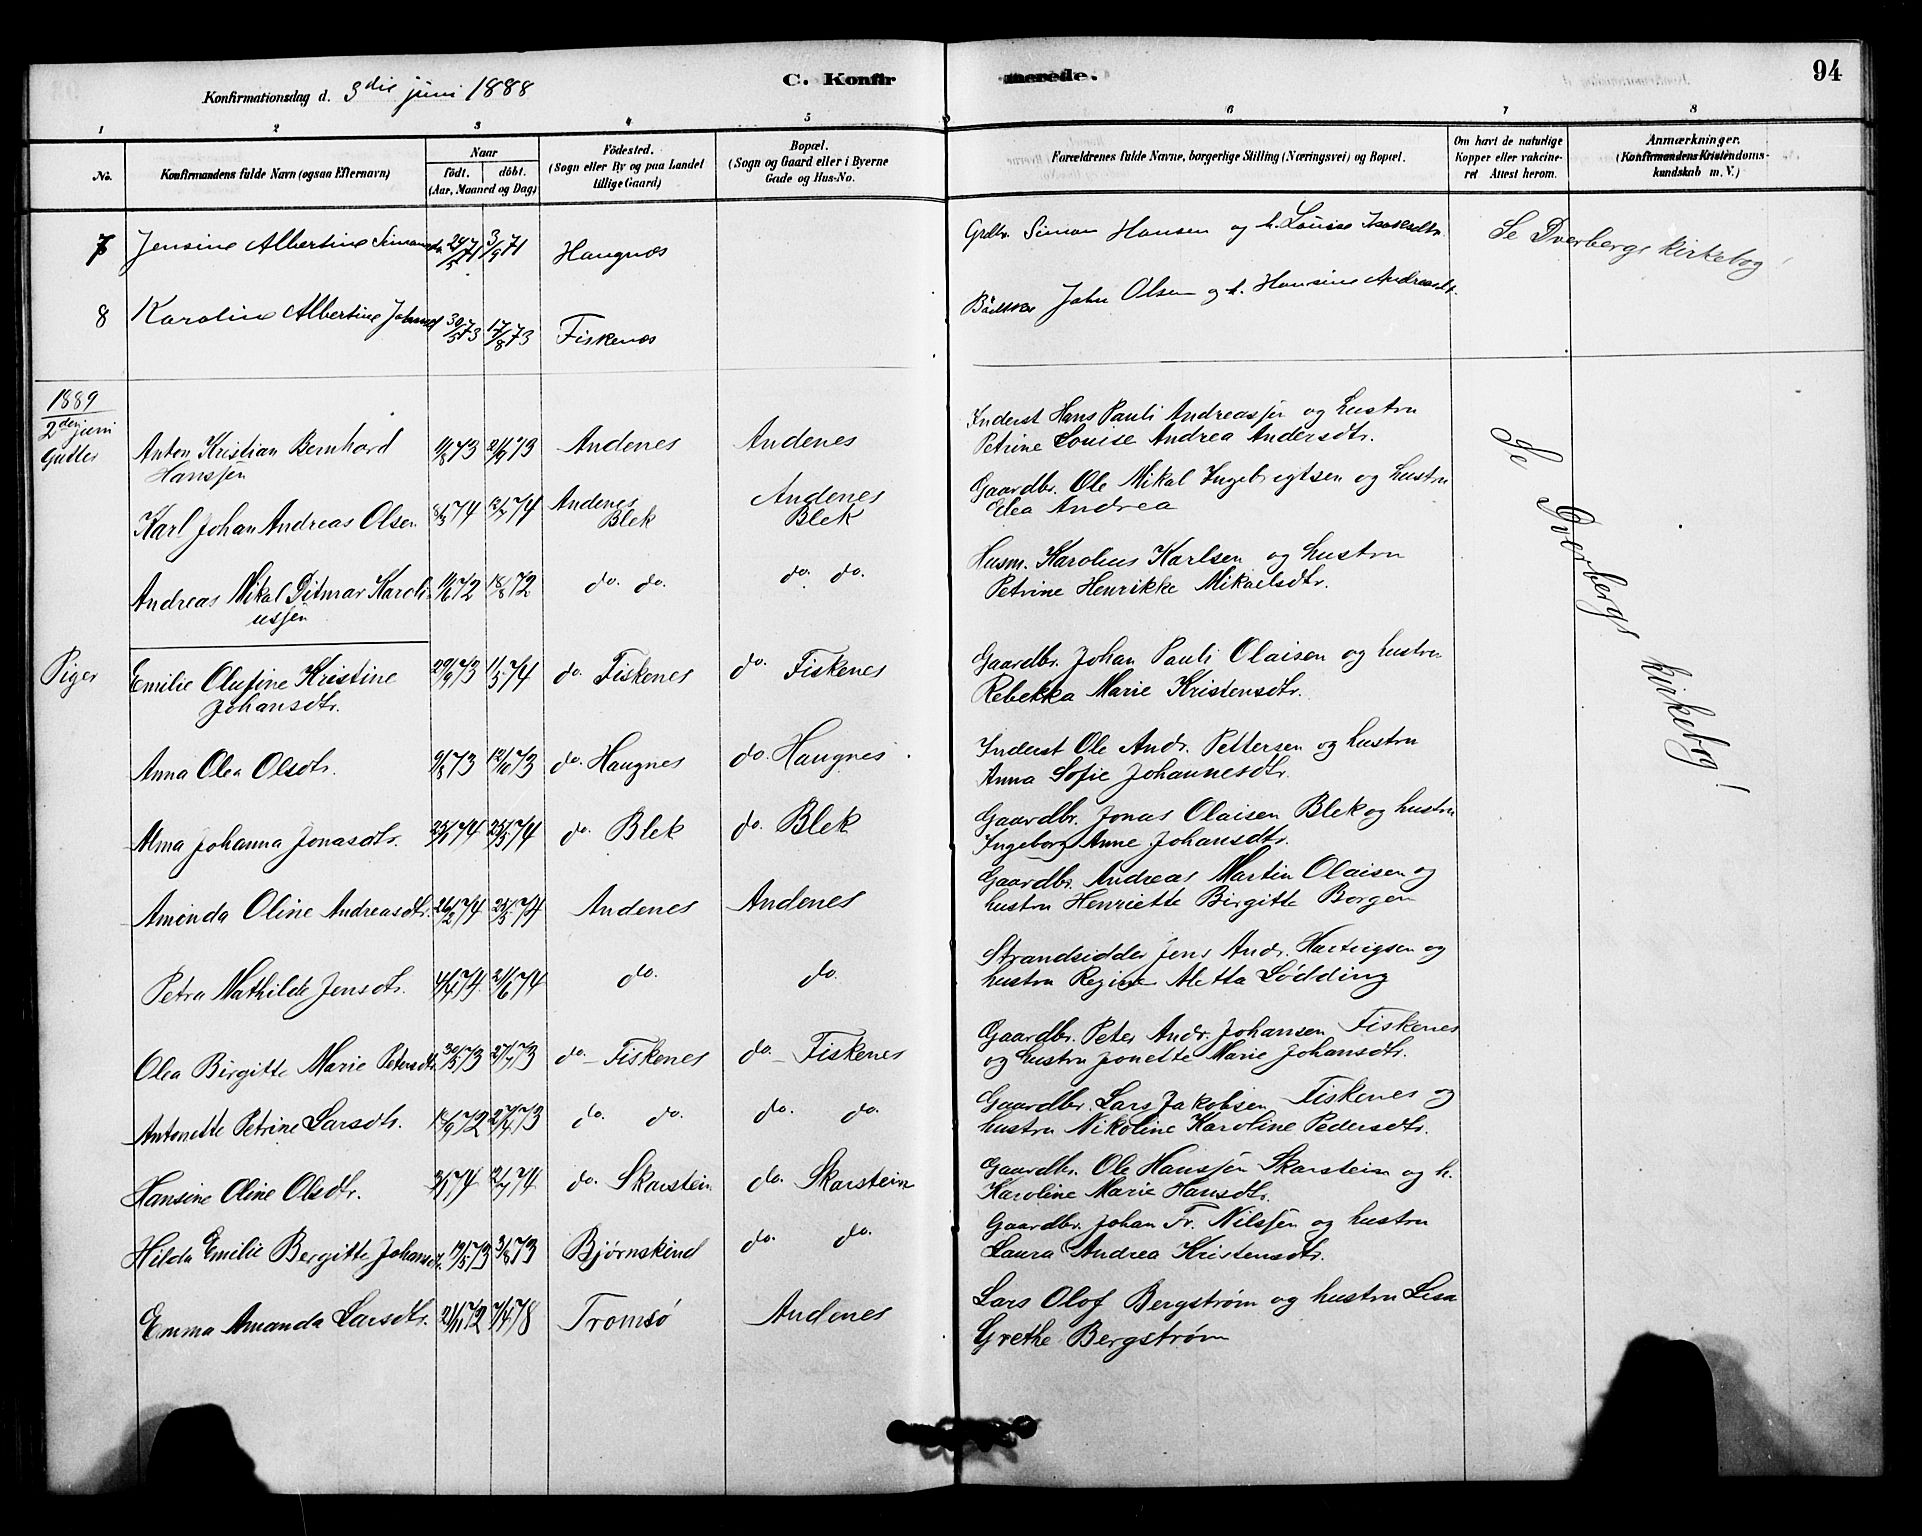 Konfirmationsdag d. 3die juni 1888 C. Konfirmerede. 94
1 2 3 4 5 6 7 8
No. Konfirmandens fulde Navn (ogsaa Efternavn) Naar födt. döbt. (Aar, Maaned og Dag) Födested. (Sogn eller By og paa Landet tillige Gaard) Bopæl. (Sogn og Gaard eller i Byerne Gade og Hus-No. Forældrenes fulde Navne, borgerlige Stilling (Næringsvei) og Bopæl. Om havt de naturlige Kopper eller vakcineret Attest herom. Anmærkninger. (Konfirmandens Kristendomskundskab m. V.)
7 Jensine Albertine Simonsdtr 29/5 71 3/9 71 Haugnæs Grdbr. Simon Hansen og h. Louise Isaksdtr. Se Dverbergs kirkebog
8 Karoline Albertine Johnsd 30/5 73 17/8 73 Fiskenæs John Olsen og h. Hansine Andreasdtr.
1889
2den juni
Gutter Anton Kristian Bernhard 73 73 Andenes Andenes Inderst Hans Pauli Andreassen og hustru
Hanssen Petrine Louise Andrea Andersdtr.
Karl Johan Andreas Olsen 74 74 Andenes Blek Andenes Blek Gaardbr. Ole Mikal Ingebrigtsen og hustru
Elea Andrea
Andreas Mikal Ditmar Karoli- 72 18/8 72 do. do. do. do. Husm. Karolius Karlsen og hustru
ussen Petrine Henrikke Mikaelsdtr.
Se Dverbergs kirkebog!
Piger Emilie Olufine Kristine 29/9 73 11/5 74 do. Fiskenes do. Fiskenes Gaardbr. Johan Pauli Olaisen og hustru
Johansdtr. Rebekka Marie Kristensdtr.
Anna Olea Olsdtr. 9/8 73 12/10 73 do. Haugnes do. Haugnes Inderst Ole Andr. Pettersen og hustru
Anna Sofie Johannesdtr.
Alma Johanna Jonasdtr. 74 74 do. Blek do. Blek Gaardbr. Jonas Olaisen Blek og hustru
Ingeborg Anne Johansdtr.
Amanda Oline Andreasdtr. 26/2 74 74 Andenes Andenes Gaardbr. Andreas Martin Olaisen og
hustru Henriette Birgitte Borgen
Petra Mathilde Jensdtr. 74 21/6 74 do. do. Strandsidder Jens Andr. Hartvigsen og
hustru Regine Aletta Lødding
Olea Birgitte Marie Petersdtr 30/5 73 27/7 73 do. Fiskenes do. Fiskenes Gaardbr. Peter Andr. Johansen Fiskenes
og hustru Jonette Marie Johansdtr.
Antonette Petrine Larsdtr. 72 73 do. do. do. do. Gaardbr. Lars Jakobsen Fiskenes og
hustru Nikoline Karoline Pedersdtr.
Hansine Oline Olsdtr. 74 74 do. Skarstein do. Skarstein Gaardbr. Ole Hanssen Skarstein og h.
Karoline Marie Hansdtr.
Hilda Emilie Bergitte Johansdtr. 19/5 73 3/8 73 Bjørnskind do. do. Gaardbr. Johan Fr. Nilssen og hustru
Laura Andrea Kristensdtr.
Emma Amanda Larsdtr. 21/11 72 7/4 78 Tromsø Andenes Lars Olof Bergstrøm og hustru Lisa
Grethe Bergstrøm